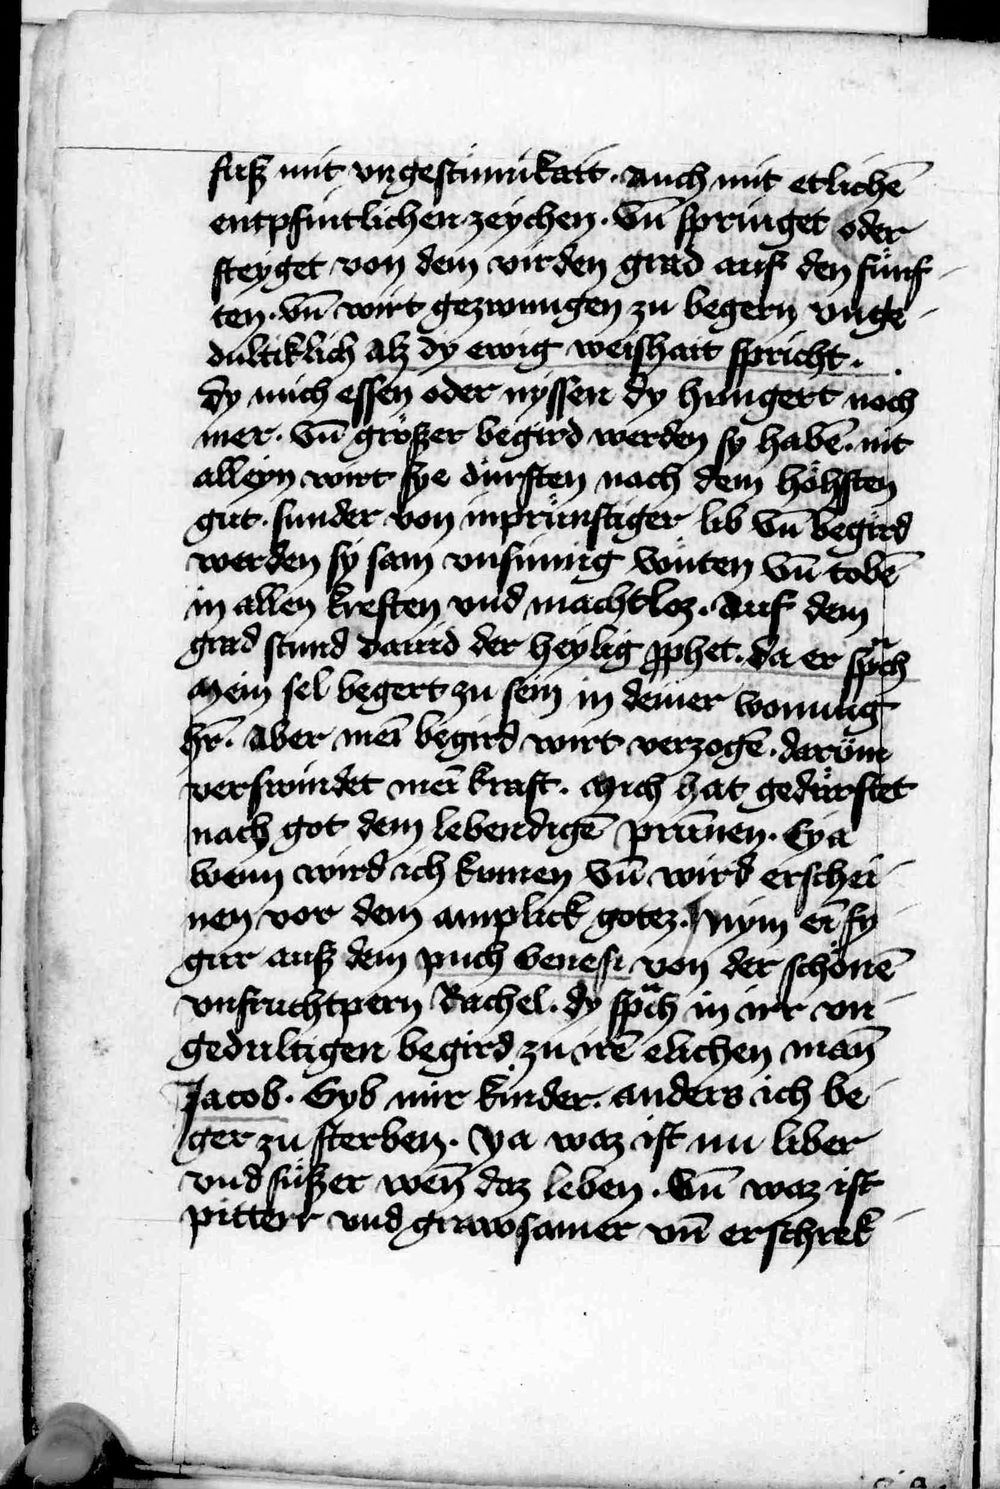 fuß mit vngestümikait. auch mit etlichē
entpfintlichen zeychen. vn̄ springet oder
steyget von dem virden grad auf den fünf-
ten. vn̄ wirt gezwungen zu begern vnge-
dultiklich alz dy ewig weishait spricht.
dy mich essen oder nyssen dy hungert noch
mer. vn̄ größzer begird werden sy habē. nit
alleyn wirt sye dürsten nach dem höhsten
gut. sunder von inprünstiger lib vn̄ begird
werden sy sam vnsinnig wüten vn̄ tobē
in allen kreften vnd machtloz. Auf dem
grad stund dauid der heylig ꝓphet. da er sp̄ch
Mein sel begert zu sein in deiner wonung
hr̄. Aber mei̅ begird wirt verzogē. darüm
verswindet mei̅ kraft. Mich hat gedürstet
nach got dem lebendigē prünnen. Eya
wenn wird ich kumen vn̄ wird erschei-
nen vor dem amplick gotez. Nym ei̅ fy-
gur auß dem puch Genesi von der schönē
vnfruchtpern Rachel. dy sp̄ch in irr vn-
gedultigen begird zu irē elichen man̄
Jacob. Gyb mir kinder. anders ich be-
ger zu sterben. Ya waz ist nu liber
vnd süßzer wen̄ daz leben. vn̄ waz ist
pitterr vnd grawsamer vn̄ erschrek-